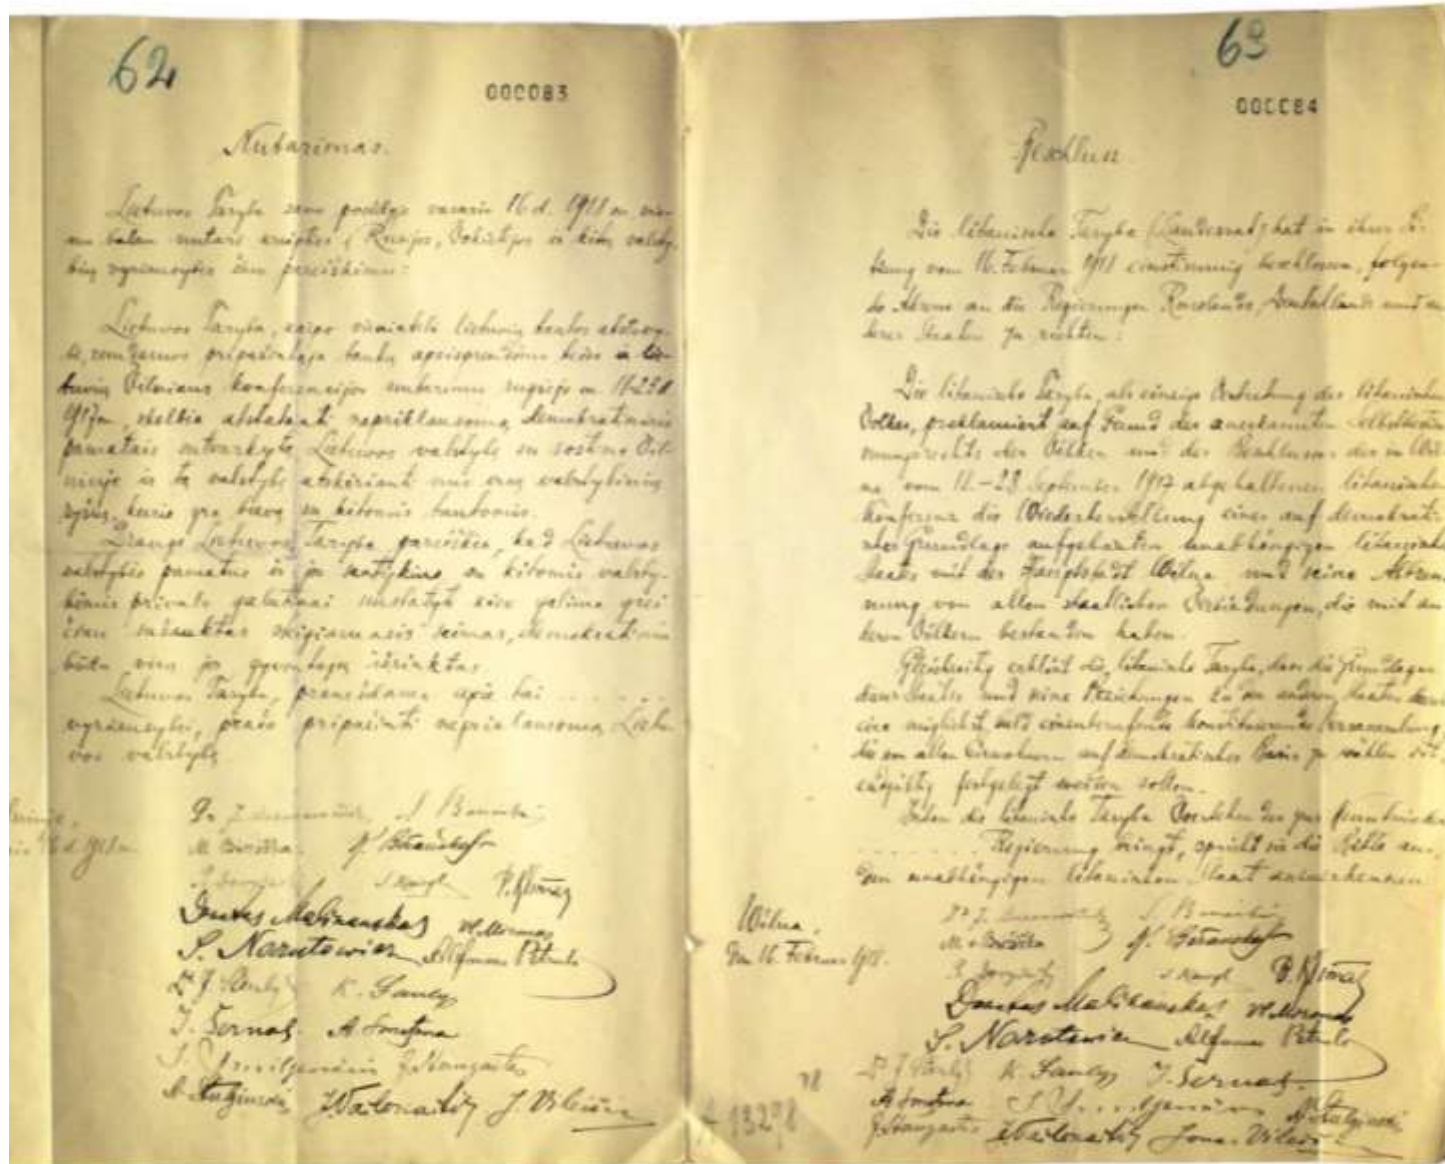 62
000083
Nutarimas.
Lietuvos Taryba savo posėdyje vasario 16 d. 1918 m. vie-
nu balsu nutarė kreiptis į Rusijos, Vokietijos ir kitų valsty-
bių vyriausybes šiuo pareiškimu:
Lietuvos Taryba, kaipo vienintelė lietuvių tautos atstovy-
bė, remdamos pripažintąja tautų apsisprendimo teise ir lie-
tuvių Vilniaus konferencijos nutarimu rugsėjo m. 18-23 d.
1917 m., skelbia atstatanti nepriklausomą, demokratiniais
pamatais sutvarkytą Lietuvos valstybę su sostine Vil-
niuje ir tą valstybę atskirianti nuo visų valstybinių
ryšių, kurie yra buvę su kitomis tautomis.
Drauge Lietuvos Taryba pareiškia, kad Lietuvos
valstybės pamatus ir jos santykius su kitomis valsty-
bėmis privalo galutinai nustatyti kiek galima grei-
čiau sušauktas steigiamasis seimas, demokratiniu
būdu visų jos gyventojų išrinktas.
Lietuvos Taryba, pranešdama apie tai . . . . . . .
vyriausybei, prašo pripažinti nepriklausomą Lietu-
vos valstybę
Dr. J. S. Banaitis
M. Biržiška. K. Bizauskas
P. Klimas
Donatas Malinauskas Vl. Mironas
S. Narutowicz Alfonsas Petrulis
Dr J. Šaulys K. Šaulys
J. Šernas. A. Smetona
J. Staugaitis
A. Stulginskis J. Vailokaitis J. Vileišis
63
000084
Beschluss.
Die litauische Taryba (Landesrat) hat in ihrer Si-
tzung vom 16. Februar 1918 einstimmig beschlossen, folgen-
des Akte an die Regierungen Russlands, Deutschlands und an-
derer Staaten zu richten:
Die litauische Taryba, als einzige Vertretung des litauischen
Volkes, proklamiert auf Grund des anerkannten Selbstbestim-
mungsrechts der Völker und des Beschlusses der in Wil-
na vom 18.–23 September 1917 abgehaltenen litauischen
Konferenz die Wiederherstellung eines auf demokrati-
scher Grundlage aufgebauten unabhängigen litauischen
Staates mit der Hauptstadt Wilna und seine Abtren-
nung von allen staatlichen Verbindungen, die mit an-
deren Völkern bestanden haben.
Gleichzeitig erklärt die litauische Taryba, dass die Grundlagen
dieses Staates und seine Beziehungen zu den anderen Staaten durch
eine möglichst bald einzuberufende konstituierende Versammlung,
die von allen Einwohnern auf demokratischer Basis zu wählen ist,
endgültig festgelegt werden sollen.
Indem die litauische Taryba zur Kenntnis der
. . . . . . . Regierung bringt, spricht sie die Bitte aus,
den unabhängigen litauischen Staat anzuerkennen
Wilna,
den 16. Februar 1918.
Dr J. S. Banaitis
M. Biržiška K. Bizauskas
P. Klimas
Donatas Malinauskas Vl. Mironas
S. Narutowicz Alfonsas Petrulis
Dr J. Šaulys K. Šaulys J. Šernas.
A. Smetona A. Stulginskis
J. Staugaitis J. Vailokaitis Jonas Vileišis